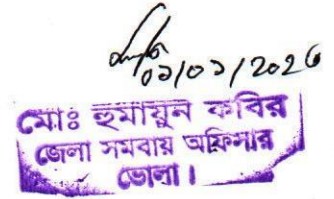 ০১/০১/২০২৬
মোঃ হুমায়ুন কবির
জেলা সমবায় অফিসার
ভোলা।